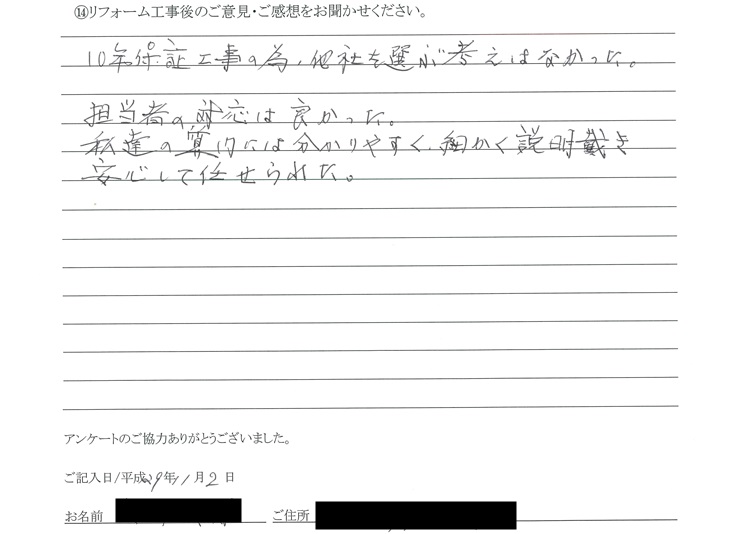 ⑭リフォーム工事後のご意見・ご感想をお聞かせください。
10年保証工事の為、他社を選ぶ考えはなかった。
担当者の対応は良かった。
私達の質問には分かりやすく、細かく説明戴き
安心して任せられた。
アンケートのご協力ありがとうございました。
ご記入日/平成29年11月2日
お名前 ご住所